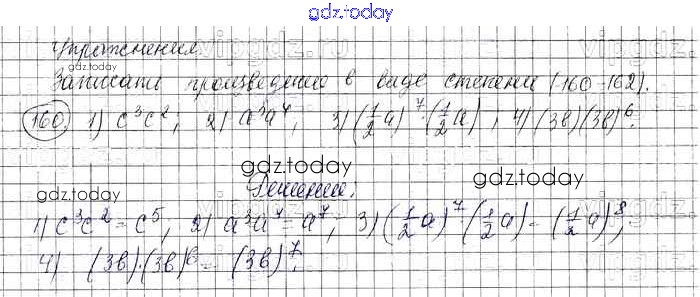 gdz.today
Упражнения
gdz.today
Записать произведение в виде степени (160-162).
160. 1) c³c²; 2) a³a⁴; 3) (1/2 a)⁷·(1/2 a); 4) (3в)(3в)⁶.
gdz.today
gdz.today
gdz.today
Решение.
1) c³c² = c⁵; 2) a³a⁴ = a⁷; 3) (1/2 a)⁷(1/2 a) = (1/2 a)⁸;
4) (3в)·(3в)⁶ = (3в)⁷.